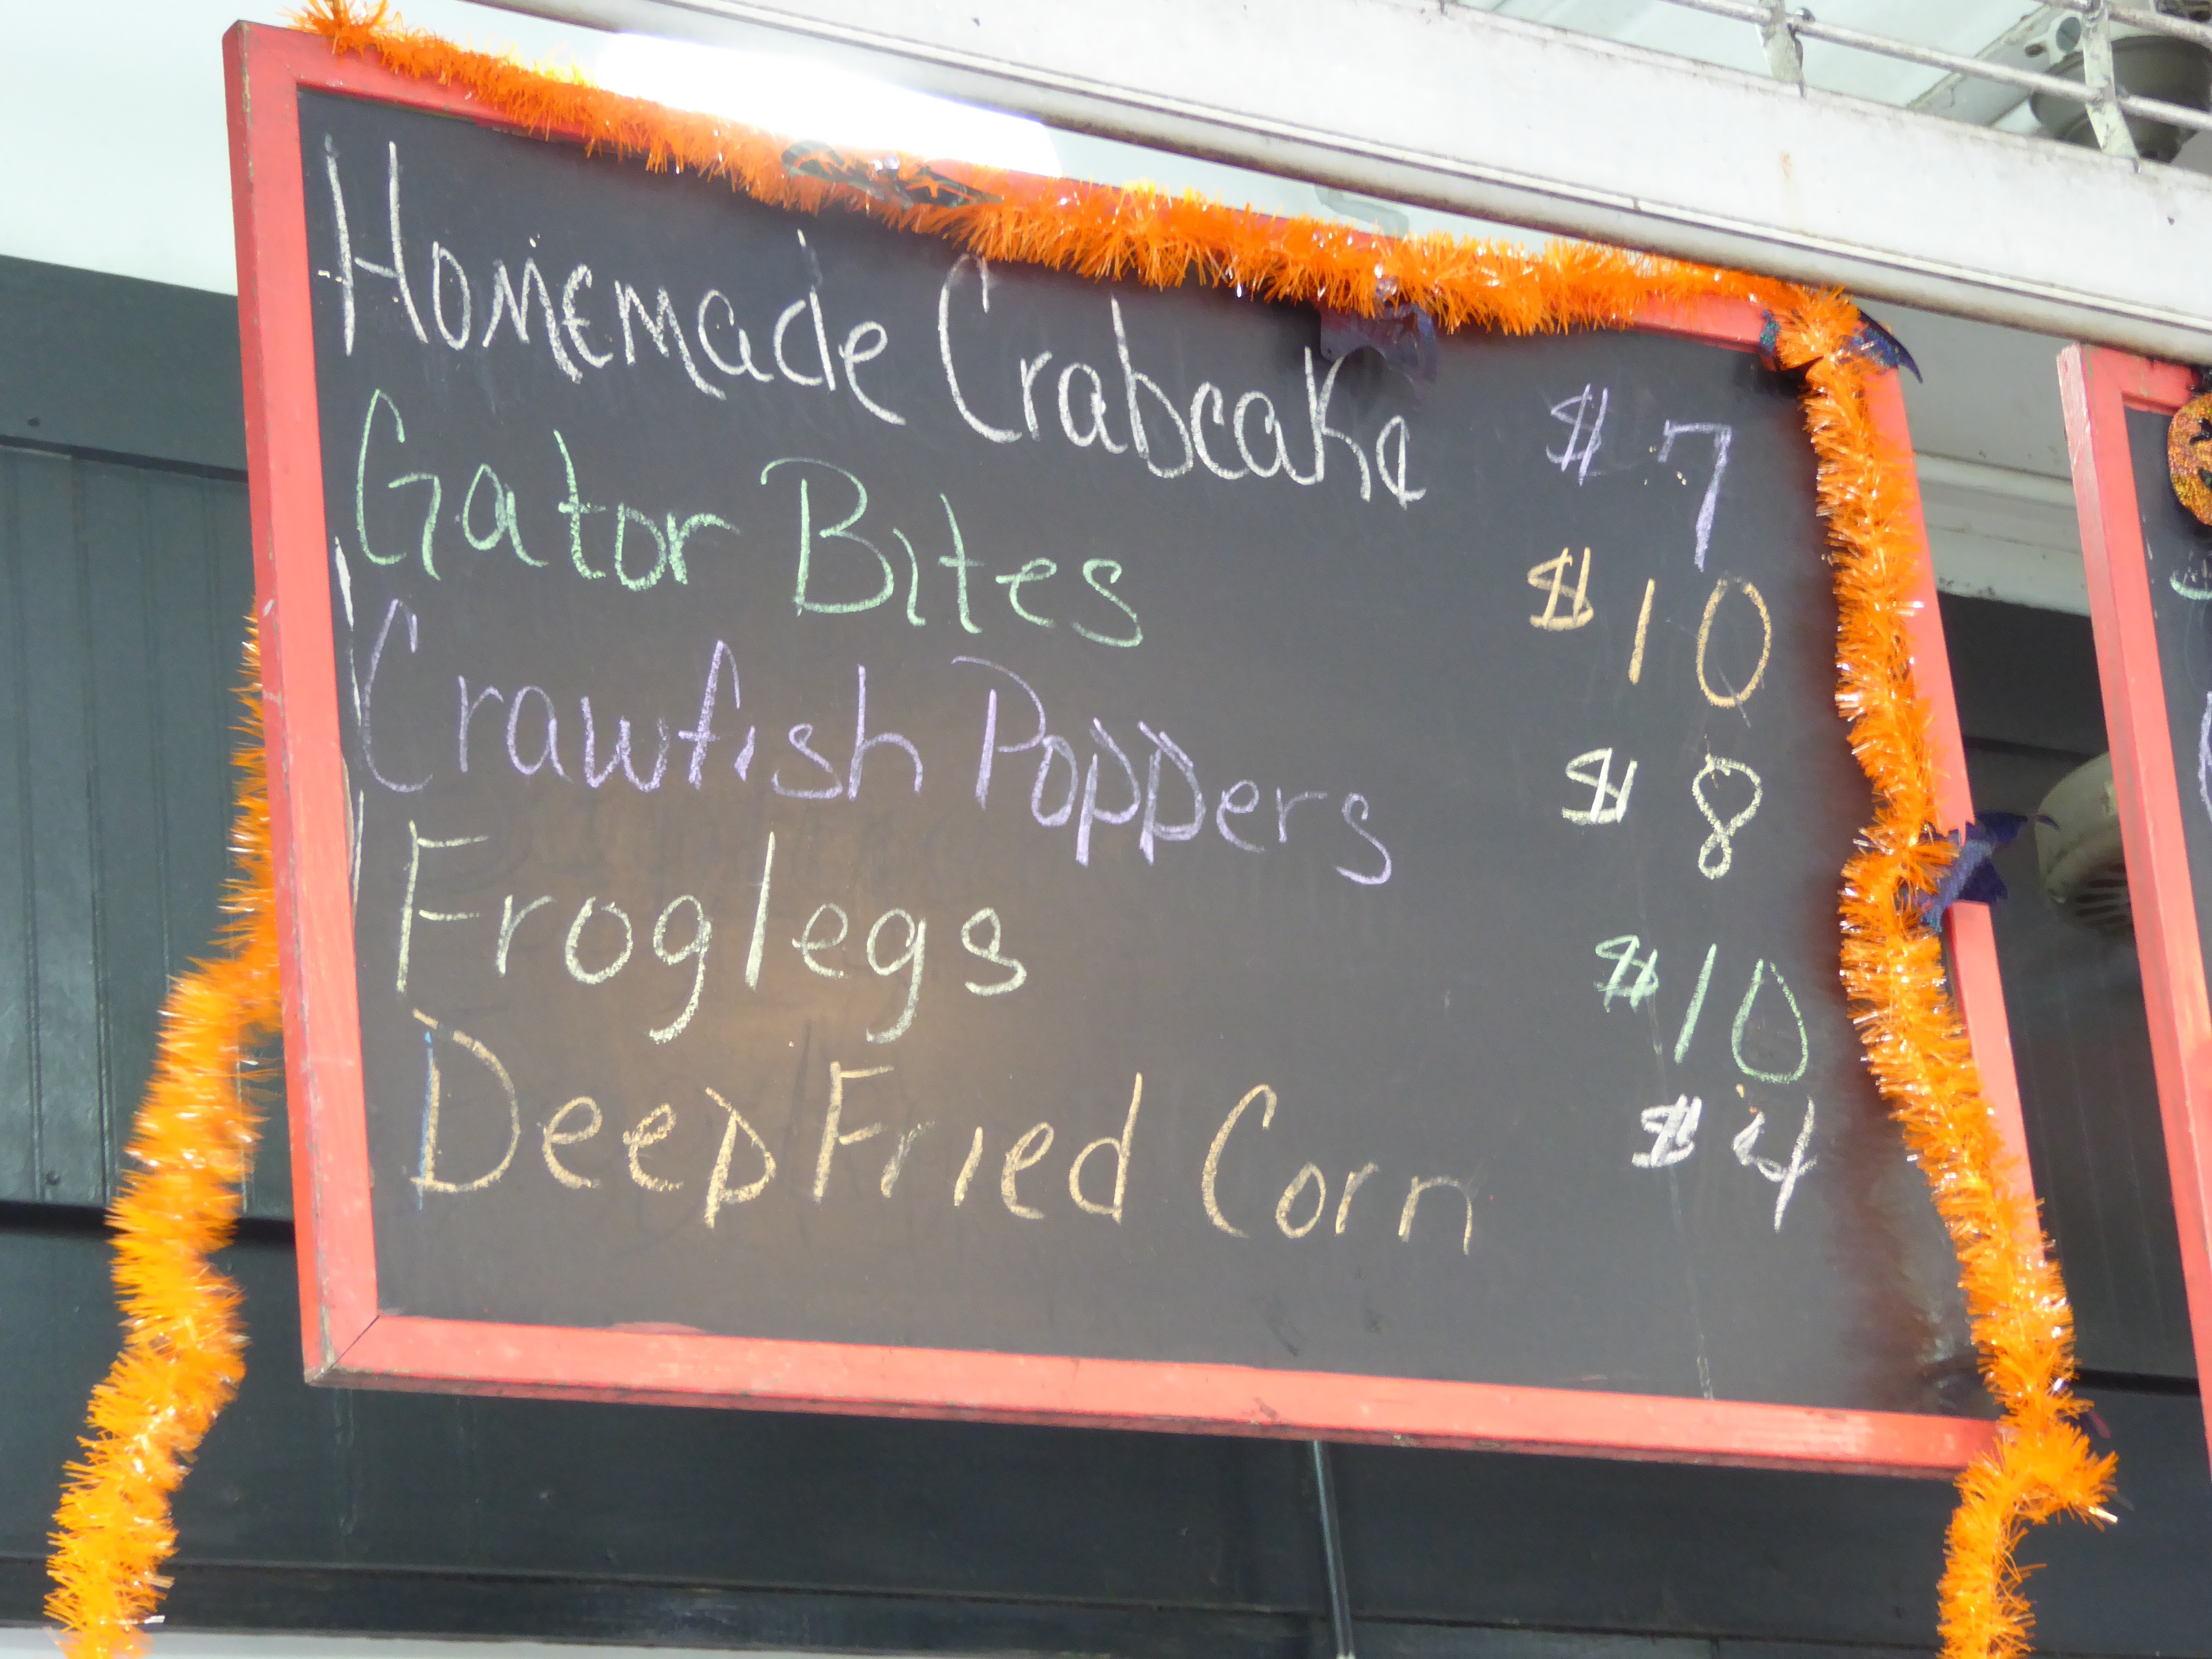 Homemade Crabcake $7
Gator Bites $10
Crawfish Poppers $8
Froglegs $10
Deep Fried Corn $4